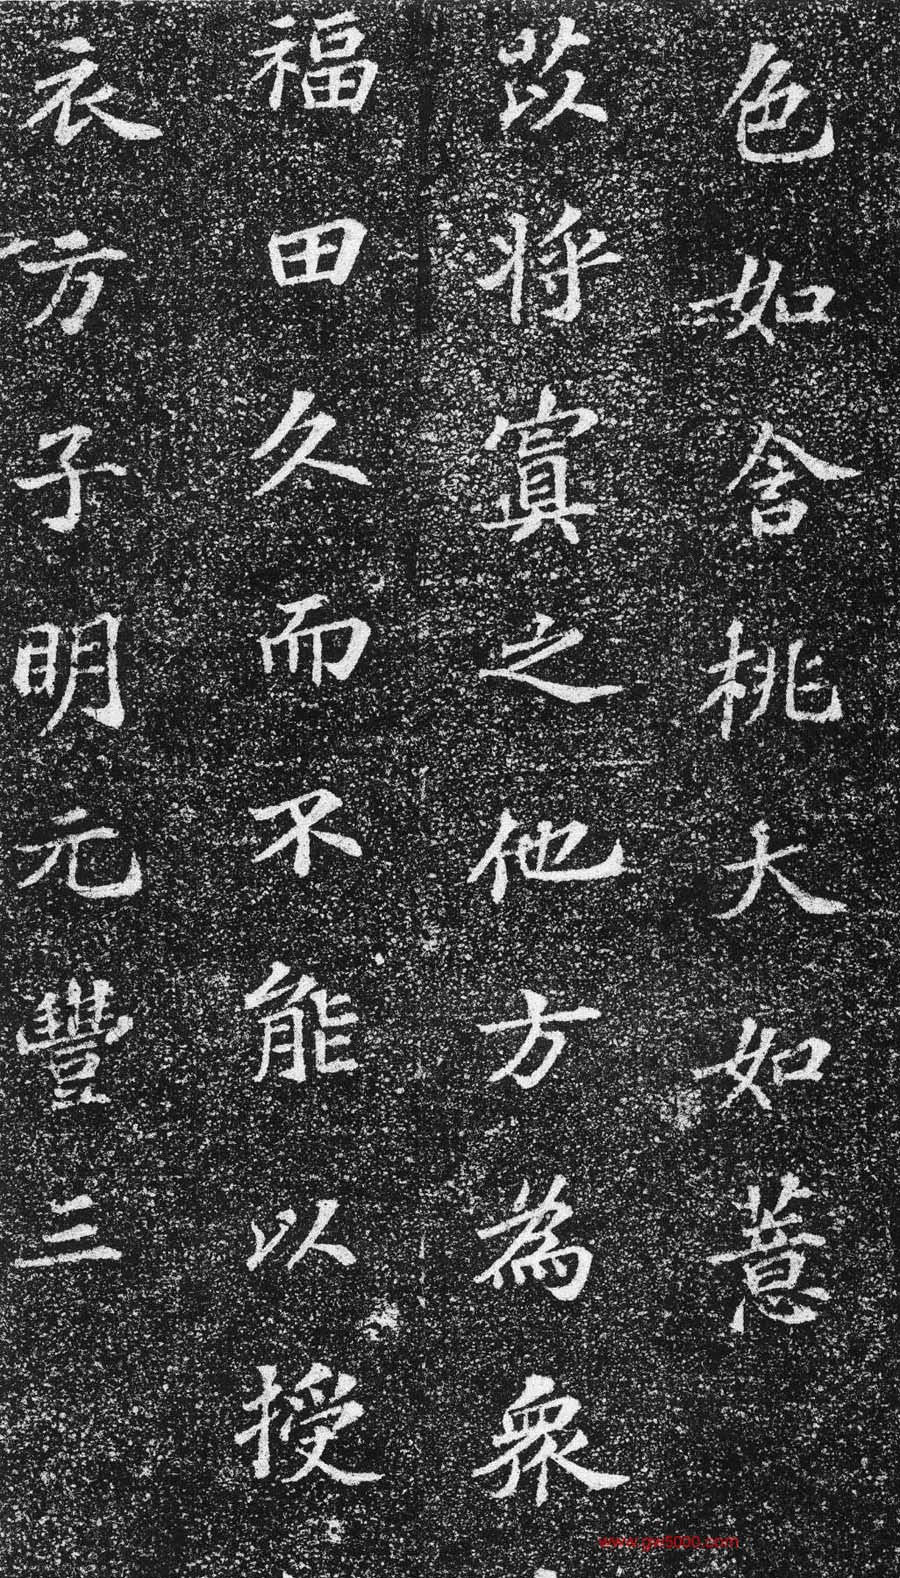 色如含桃大如薏
苡将寘之他方為衆
福田久而不能以授
衣方子明元豐三
www.gxl5000.com